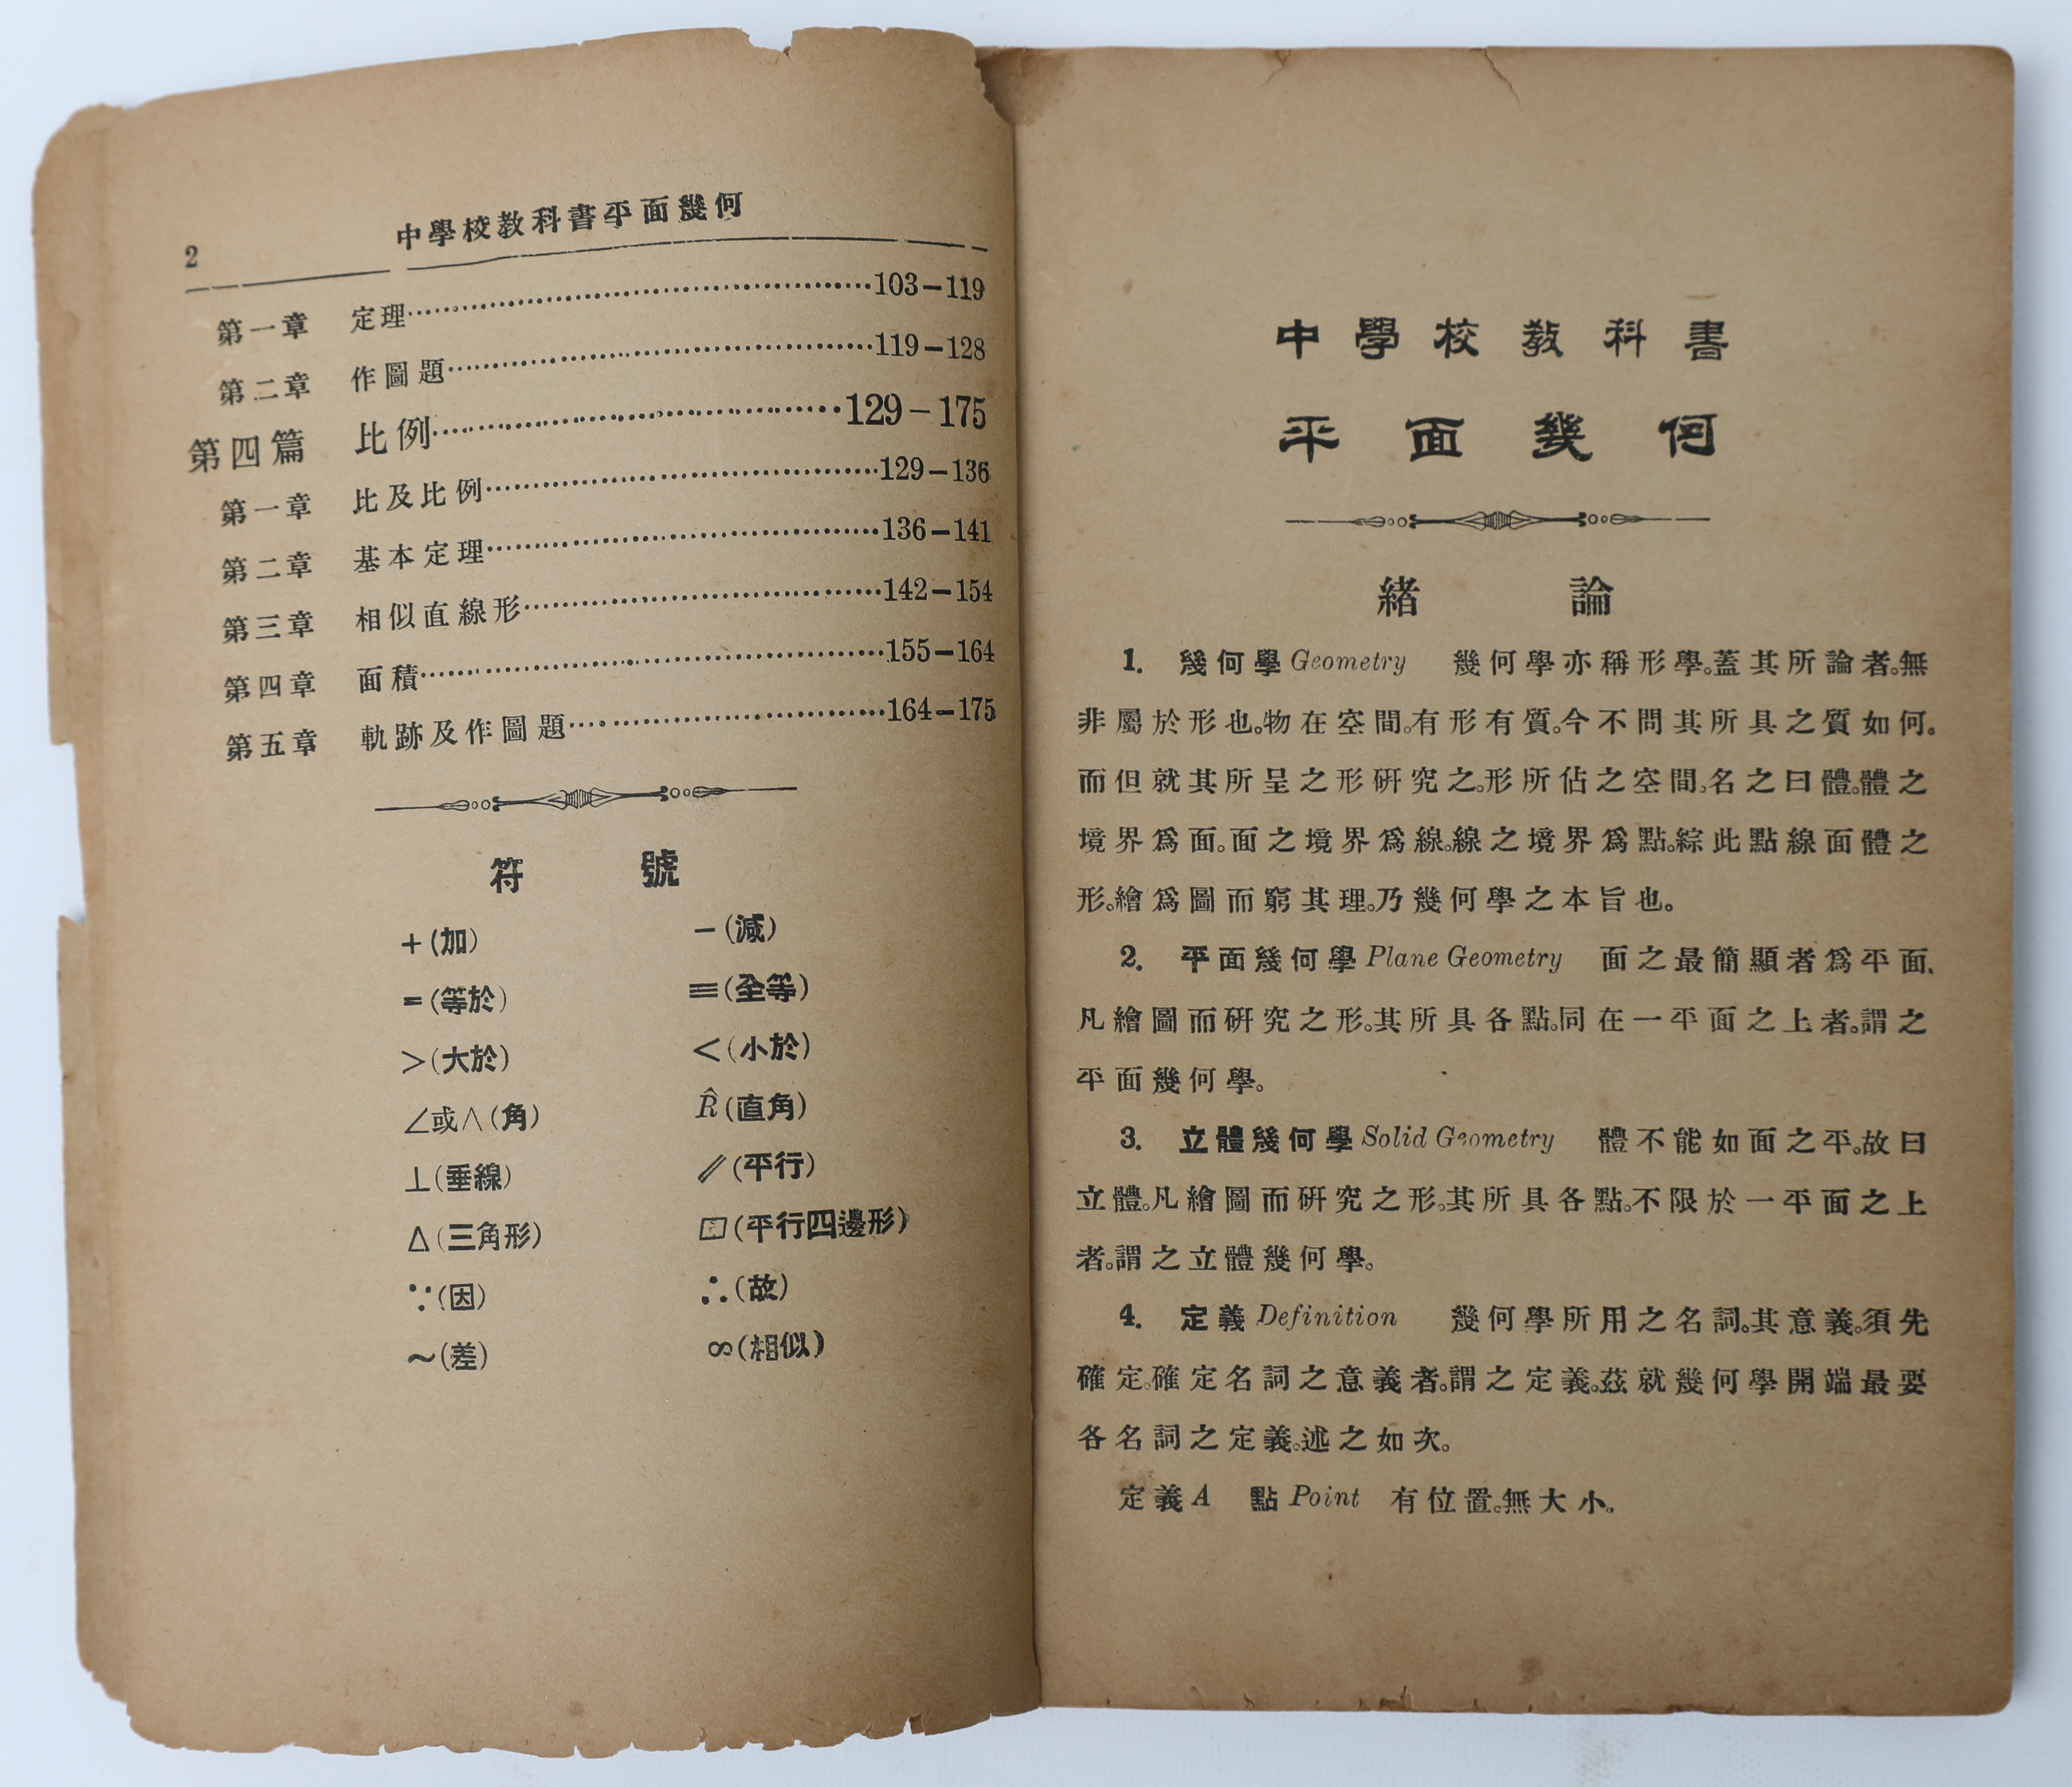 2
中學校教科書平面幾何
第一章 定理……………103—119
第二章 作圖題……………119—128
第四篇 比例……………129—175
第一章 比及比例……………129—136
第二章 基本定理……………136—141
第三章 相似直線形……………142—154
第四章 面積……………155—164
第五章 軌跡及作圖題……………164—175
符 號
+(加) −(減)
=(等於) ≡(全等)
>(大於) <(小於)
∠或∧(角) R̂(直角)
⊥(垂線) ∥(平行)
Δ(三角形) ▱(平行四邊形)
∵(因) ∴(故)
~(差) ∽(相似)
中學校教科書
平面幾何
緒 論
1. 幾何學 Geometry 幾何學亦稱形學。蓋其所論者。無
非屬於形也。物在空間。有形有質。今不問其所具之質如何。
而但就其所呈之形研究之。形所佔之空間。名之曰體。體之
境界爲面。面之境界爲線。線之境界爲點。綜此點線面體之
形。繪爲圖而窮其理。乃幾何學之本旨也。
2. 平面幾何學 Plane Geometry 面之最簡顯者爲平面、
凡繪圖而研究之形。其所具各點。同在一平面之上者。謂之
平面幾何學。
3. 立體幾何學 Solid Geometry 體不能如面之平。故曰
立體。凡繪圖而研究之形。其所具各點。不限於一平面之上
者。謂之立體幾何學。
4. 定義 Definition 幾何學所用之名詞。其意義。須先
確定。確定名詞之意義者。謂之定義。茲就幾何學開端最要
各名詞之定義。述之如次。
定義 A 點 Point 有位置。無大小。